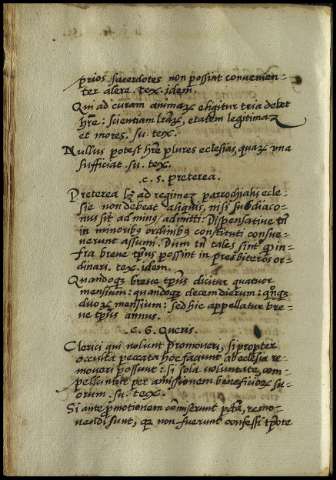 prios sacerdotes non possint convenien-
ter alere. tex. idem.
Qui ad curam animaꝝ eligitur tria debet
hr̃e: scientiam lraꝝ, etatem legitimã
et mores. su. tex.
Nullus potest hr̃e plures eclesias, quaꝝ una
sufficiat su. tex.
c. 5. preterea.
Preterea lꝫ ad regimen parrochialis ecle-
sie non debeat aliquis, nisi subdiaco-
nus sit ad minꝰ admitti: dispensative tñ
in minoribꝰ ordinibꝰ constituti consue-
verunt assumi. Dum tñ tales sint qͥ in-
fra breve tp̃us possint in presbiteros or-
dinari. tex. idem.
Quandoqꝫ breve tp̃us dicitur quatuor
mensium: quandoqꝫ decem dierum: qñqꝫ
duoꝝ mensium: sed hic appellatur bre-
ve tp̃us annus.
c. 6. Queris.
Clerici qui nolunt promoveri, si propter
occulta peccata hoc faciunt ab eclesia re-
moveri possunt: si sola voluntate, com-
pelluntur per amissionem beneficioꝝ su-
orum. su. tex.
Si ante promotionem comiserunt pctã, remo-
vendi sunt, qꝛ non fuerunt confessi tp̃ore